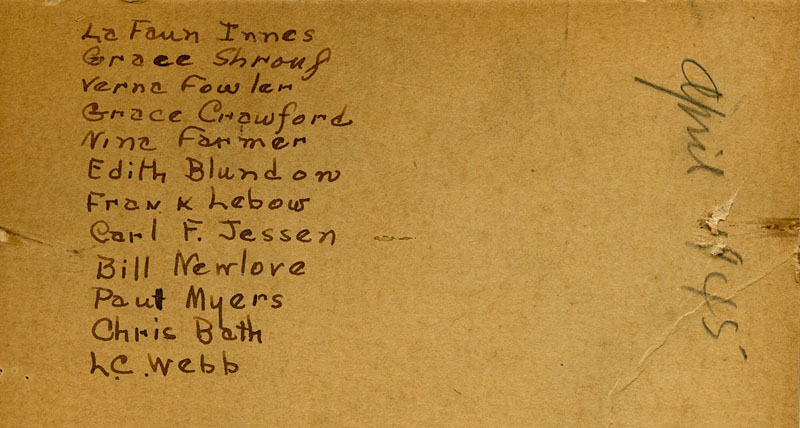 La Faun Innes
Grace Shrouf
Verna Fowler
Grace Crawford
Nina Farmer
Edith Blundon
Frank Lebow
Carl F. Jessen
Bill Newlove
Paul Myers
Chris Bath
L.C. Webb
April 1945